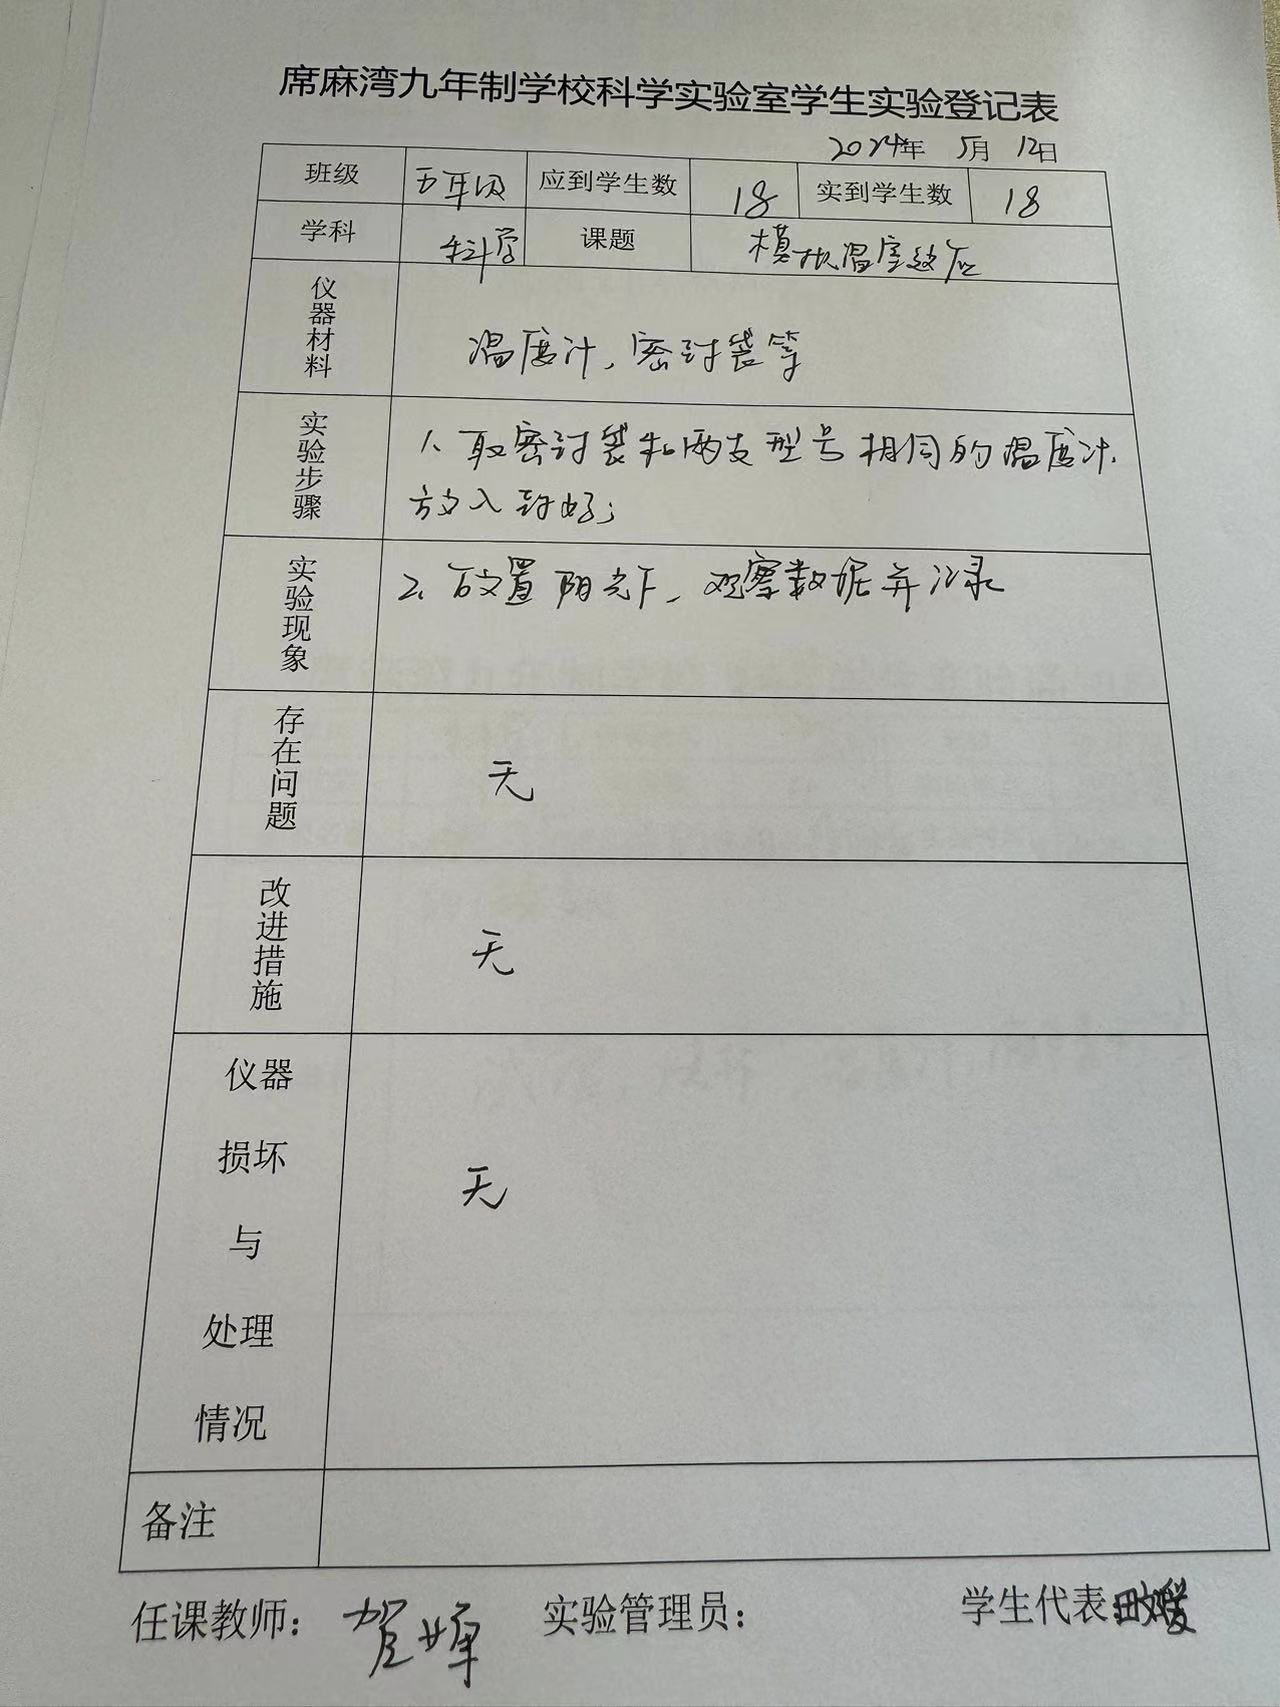 席麻湾九年制学校科学实验室学生实验登记表
2024年 5月 12日
班级 五年级 应到学生数 18 实到学生数 18
学科 科学 课题 模拟温室效应
仪器材料 温度计,密封袋等
实验步骤 1、取密封袋和两支型号相同的温度计,
放入封好;
实验现象 2、放置阳光下,观察数据并记录
存在问题 无
改进措施 无
仪器
损坏
与
处理
情况
无
备注
任课教师: 贺 实验管理员: 学生代表 田